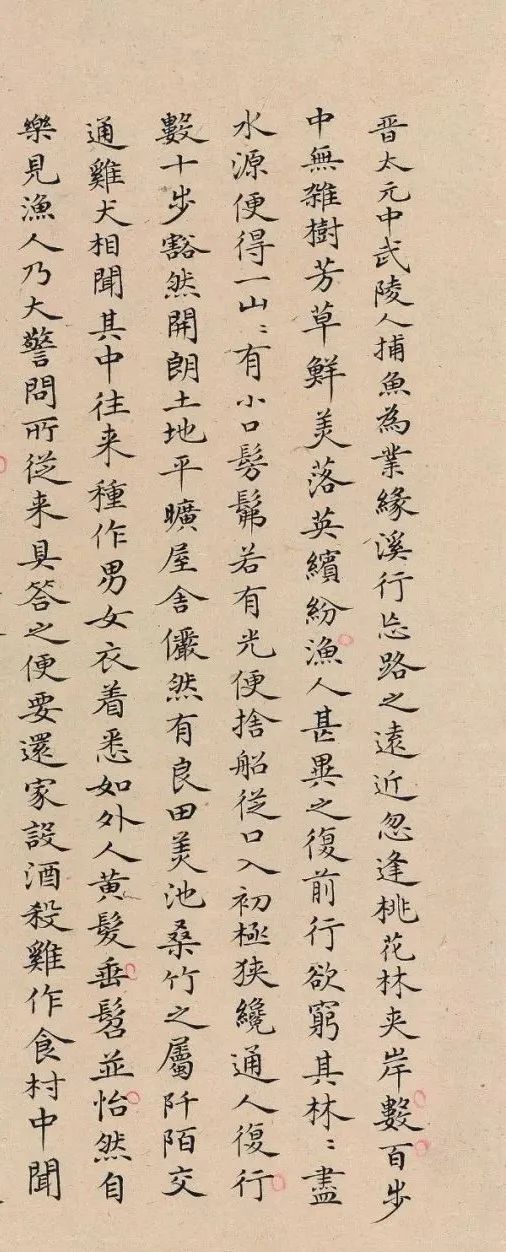 晋太元中武陵人捕魚為業緣溪行忘路之遠近忽逢桃花林夹岸數百步
中無雑樹芳草鮮美落英繽紛漁人甚異之復前行欲窮其林〻盡
水源便得一山〻有小口髣髴若有光便捨船従口入初極狭纔通人復行
數十步豁然開朗土地平曠屋舎儼然有良田美池桑竹之屬阡陌交
通雞犬相聞其中往来種作男女衣着悉如外人黄髪垂髫並怡然自
樂見漁人乃大驚問所従来具答之便要還家設酒殺雞作食村中聞